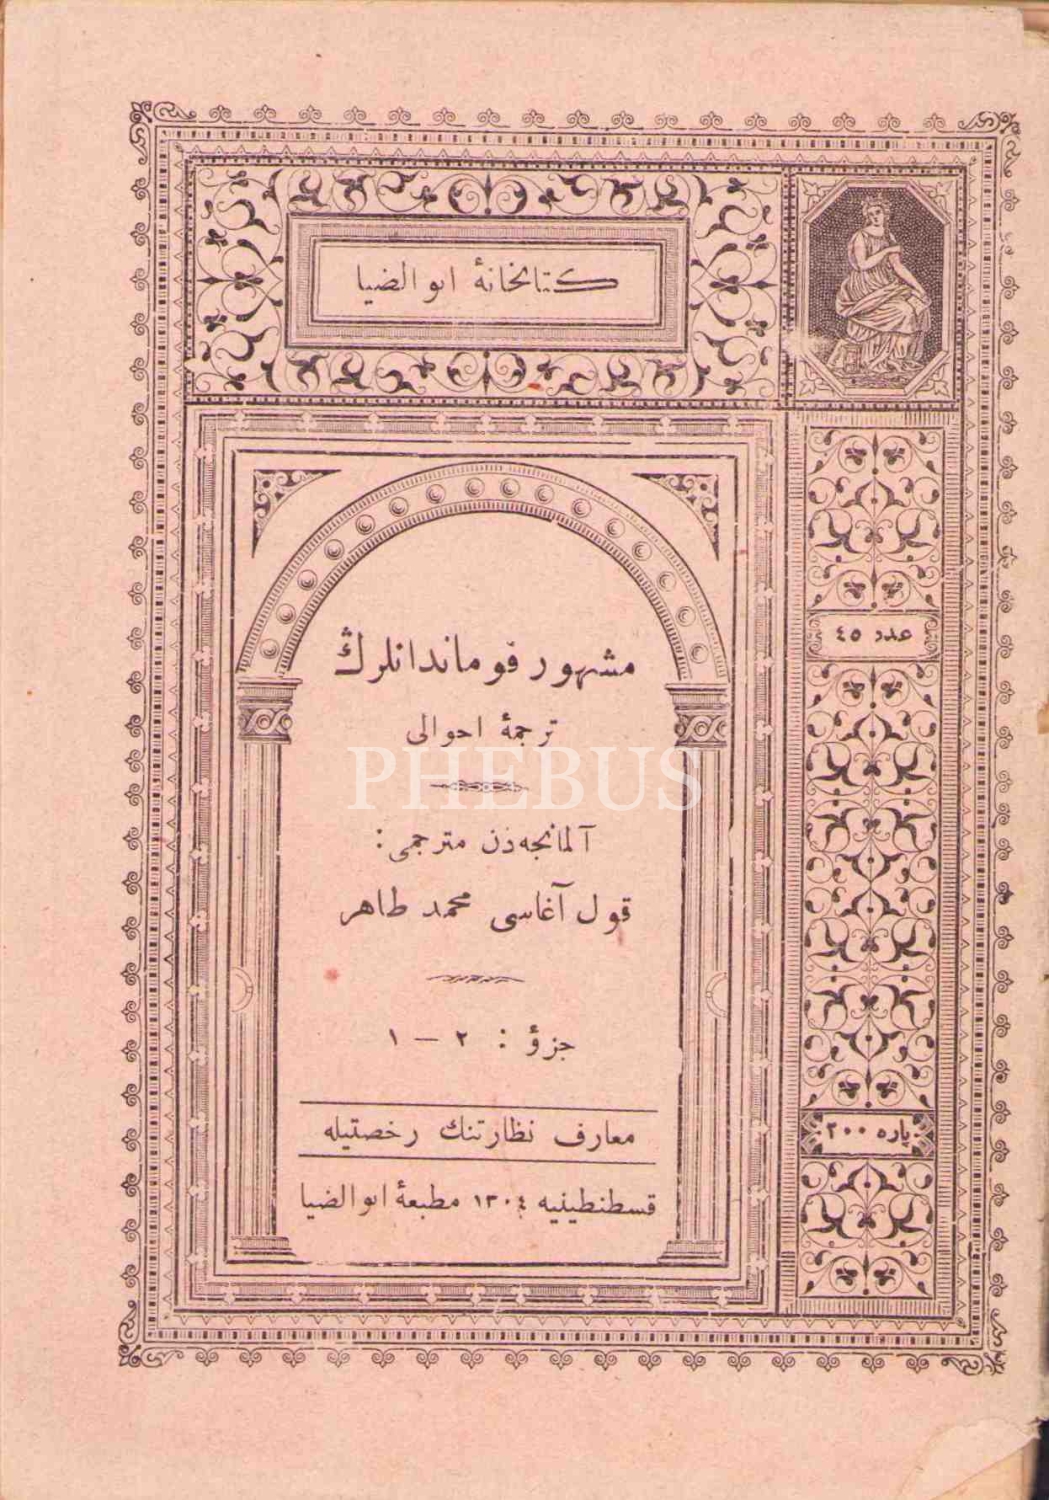 كتابخانهٔ ابوالضيا
عدد ٤٥
مشهور قوماندانلرڭ
ترجمهٔ احوالى
PHEBUS
آلمانجه‌دن مترجمى :
قول آغاسى محمد طاهر
جزؤ : ٢ — ١
معارف نظارتنك رخصتيله
پاره ٢٠٠
قسطنطينيه ١٣٠٤ مطبعهٔ ابوالضيا